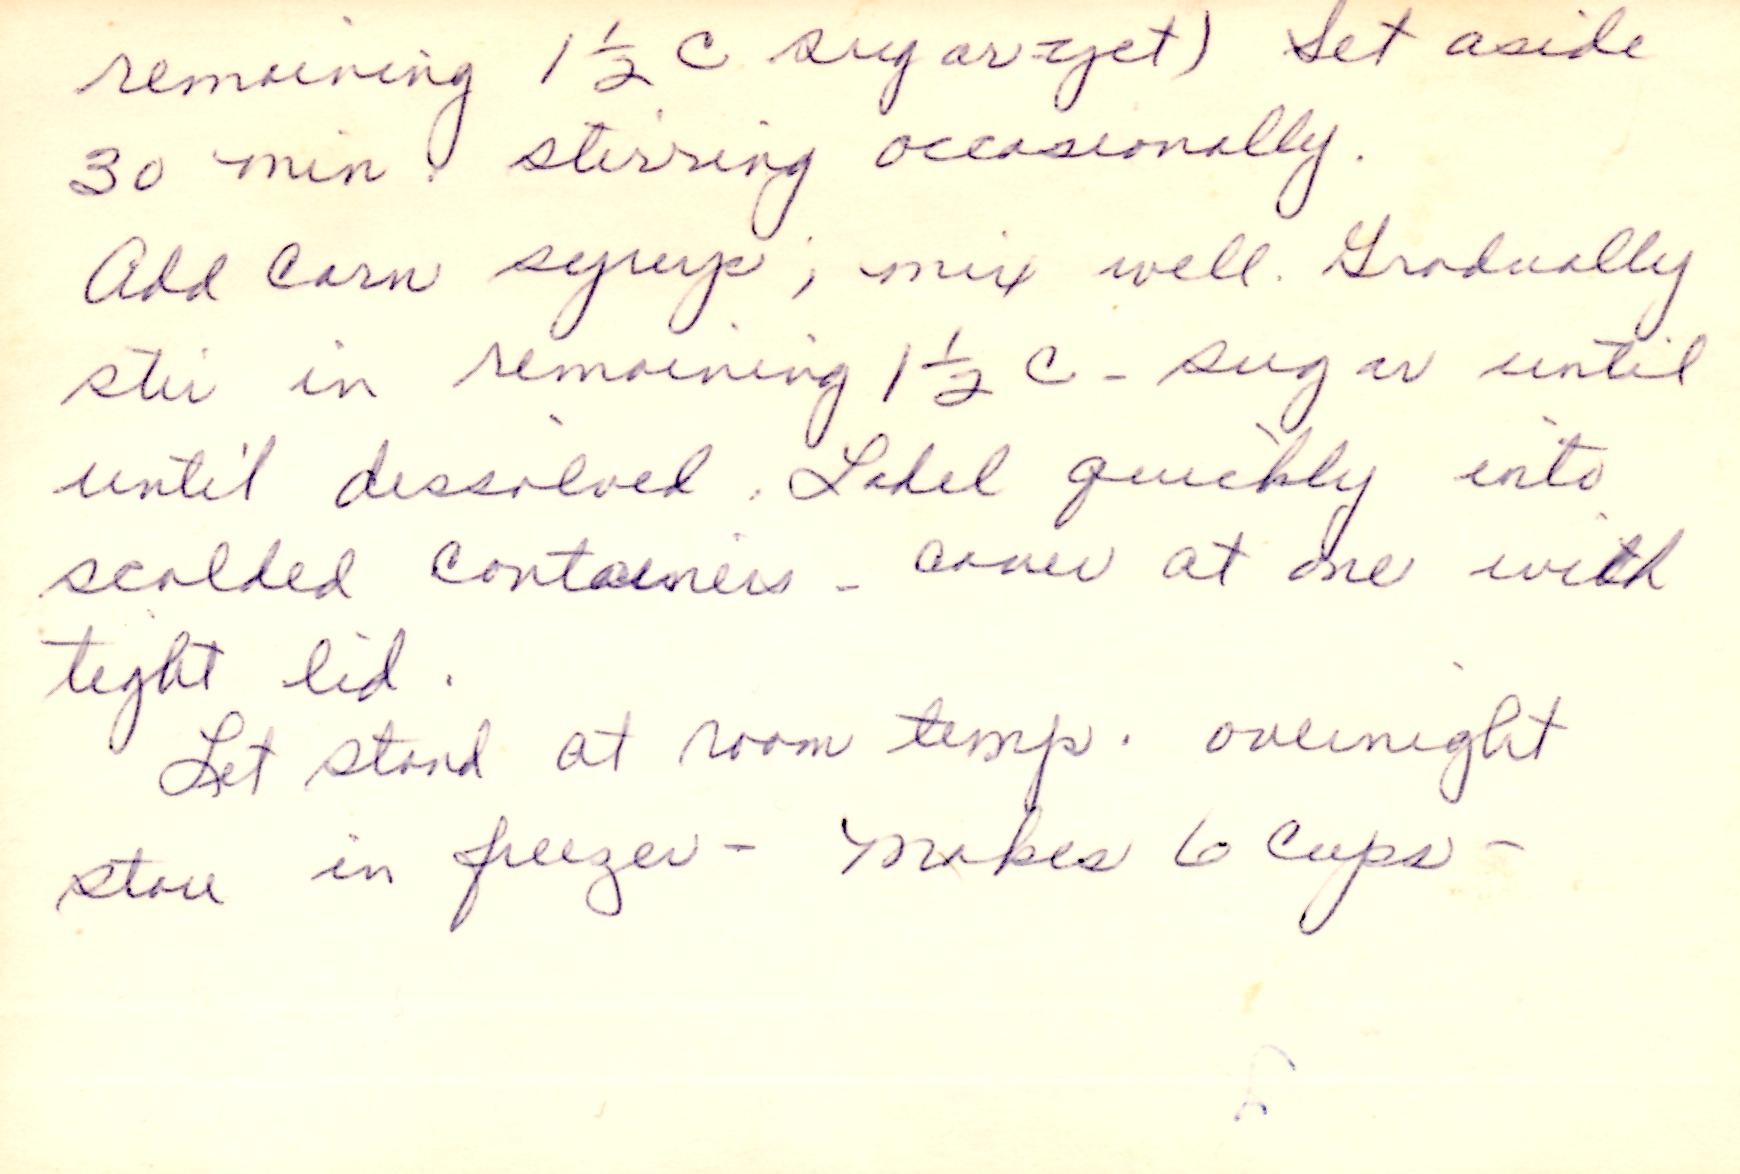 remaining 1 1/2 C sugar-yet) Set aside
30 min. stirring occasionally.
Add Corn syrup; mix well. Gradually
stir in remaining 1 1/2 C - sugar until
until dissolved. Ladel quickly into
scalded containers - cover at one with
tight lid.
Let stand at room temp. overnight
store in freezer - Makes 6 Cups -